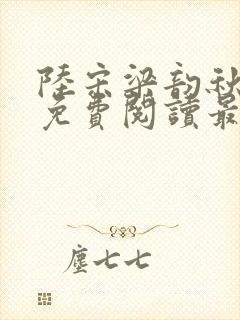 陸宗梁韵秋
免費閱讀最
塵七七